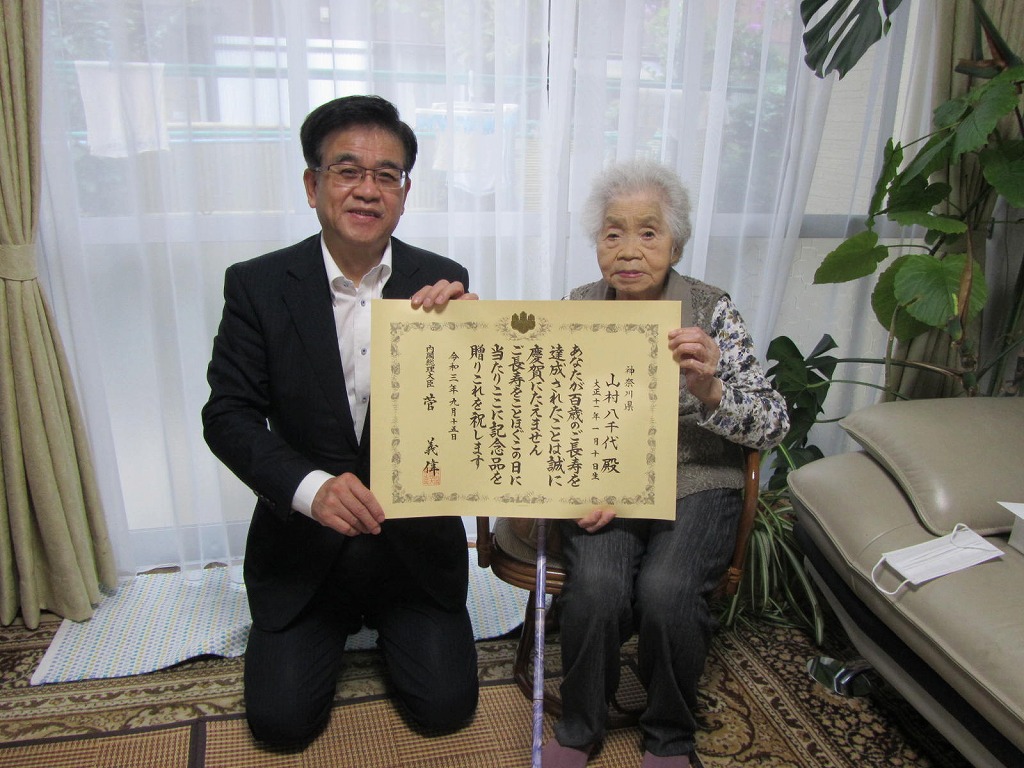 神奈川県
山村八千代 殿
大正十年一月十日生
あなたが百歳のご長寿を
達成されたことは誠に
慶賀にたえません
ご長寿をことほぐこの日に
当たりここに記念品を
贈りこれを祝します
令和三年九月十五日
内閣総理大臣 菅 義偉